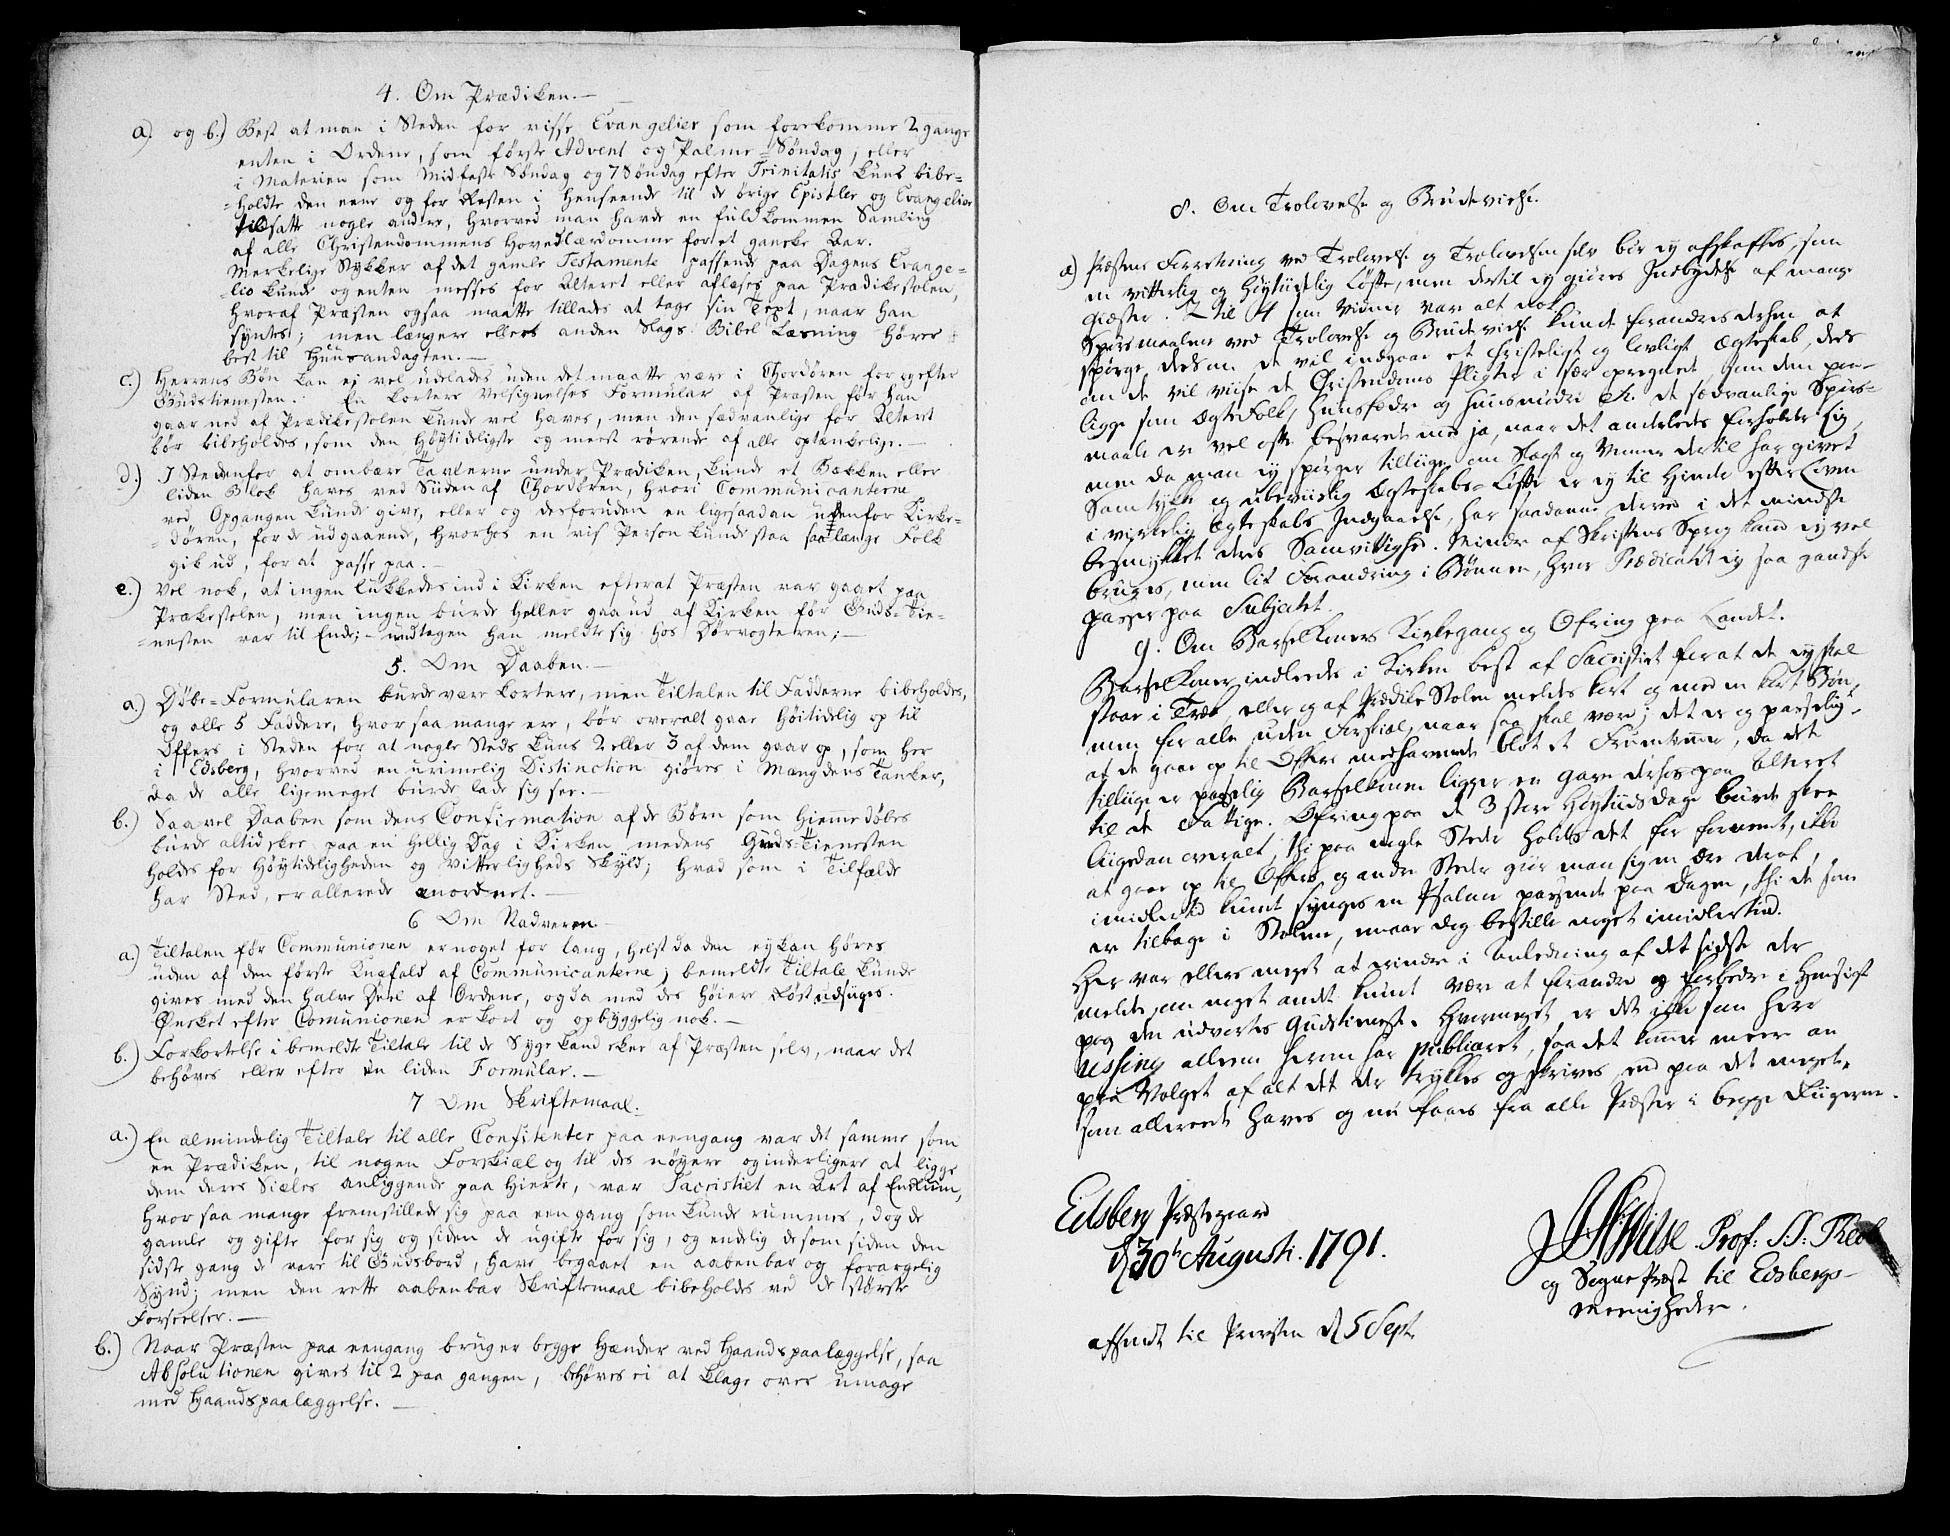 4. Om Prædiken. —
a) og b.) Best at man i Steden for visse Evangelier som forekomme 2 gange
enten i Ordene, som første Advent og Palme-Søndag, eller
i Materien som Midfaste Søndag og 7 Søndag efter Trinitatis kuns bibe=
=holdte den eene og for Resten i Henseende til de örige Epistler og Evangelier
tilsatte nogle andre, hvorved man havde en fuldkommen Samling
af alle Christendommens Hovedlærdomme for et ganske Aar.
Merkelige Stykker af det gamle Testamente passende paa Dagens Evange=
=lio kunde og enten messes for Alteret eller aflæses paa Prædikestolen,
hvoraf Præsten ogsaa maatte tillades at tage sin Text, naar han
syntes; men længere ellers anden Slags Bibel Læsning hører
best til Huusandagten. —
c.) Herrens Bön kan ej vel udelades uden det maatte være i Chordören for og efter
Gudstienesten. En kortere Velsignelses Formular af Præsten för han
gaar ned af Prædikestolen kunde vel haves, men den sædvanlige for Alteret
bör bibeholdes, som den Höytideligste og meest rörende af alle optænkelige. —
d.) I Stedenfor at ombære Tavlerne under Prædiken, kunde et Bækken eller
liden Blok haves ved Siiden af Chordören, hvori Communicanterne
ved Opgangen kunde give, eller og desforuden en ligesaadan udenfor Kirke=
=dören, for de udgaaende, hvorhos en vis Person kunde staa saalænge Folk
gik ud, for at passe paa. —
e.) Vel nok, at ingen lukkedes ind i Kirken efterat Præsten var gaaet paa
Prækestolen, men ingen burde heller gaa ud af Kirken för Guds-Tie=
=nesten var til Ende; — undtagen han meldte sig hos Dörvogteren; —
5. Om Daaben. —
a.) Döbe=Formularen burde være kortere, men Tiltalen til Fadderne bibeholdes,
og alle 5 Faddere, hvor saa mange ere, bör overalt gaae Höitidelig op til
Offers i Steden for at nogle Steds kuns 2 eller 3 af dem gaar op, som her
i Edsberg, hvorved en urimelig Distinction giöres i Mængdens Tanker,
da de alle ligemeget burde lade sig see. —
b.) Saavel Daaben som dens Confirmation af de Börn som Hiemmedöbes
burde altid skee paa en Hellig Dag i Kirken medens Guds-Tienesten
holdes for Höytideligheden og Vitterligheds Skyld; hvad som i Tilfælde
har Sted, er allerede anordnet. —
6 Om Nadveren
a.) Tiltalen för Communionen er noget for lang, helst da den ey kan höres
uden af den förste Knæfald af Communicanterne; bemeldte Tiltale kunde
gives med den halve Deel af Ordene, og da med des höiere Röst udsiiges.
Önsket efter Comunionen er kort og opbyggelig nok. —
b.) Forkortelse i bemeldte Tiltale til de Syge kand skee af Præsten selv, naar det
behöves eller efter en liden Formular. —
7 Om Skriftemaal.
a.) En almindelig Tiltale til alle Confitenter paa eengang var det samme som
en Prædiken, til nogen Forskiæl og til des nöyere og inderligere at ligge
dem deres Siæles anliggende paa Hierte, var Sacristiet en Art af
hvor saa mange fremstillede sig paa een gang som kunde rummes, dog de
gamle og gifte for sig og siden de ugifte for sig, og endelig de som siden den
sidste gang de vare til Gudsbord, have begaaet en aabenbar og forargelig
Synd; men den rette aabenbar Skriftemaal bibeholdes ved de störste
Forseelser. —
b.) Naar Præsten paa eengang bruger begge Hænder ved Haandspaalæggelse, saa
Absolutionen gives til 2 paa gangen, behöves ei at klage over umage
med Haandspaalæggelse. —
8. Om Trolovelse og Brudevielse.
a) Præstens Forretning ved Trolovelse og Trolovelsen selv bör ey afskaffes, som
en vitterlig og höytiidelig Löfte, men dertil ey giöres Indbydelse af mange
Giæster. 2 til 4 som Vidner var alt nok
Spörsmaalene ved Trolovelse og Brudevielse kunde forandres derhen at
spörge, dersom de vil indgaae et Christeligt og lovligt Ægteskab, des
om de vil viise de Christendoms Pligter i sær opregnet, som dem paa=
ligge som Ægte Folk, Huusfædre og Huusmödre &c. de sædvanlige Spörs=
maale er vel ofte besvarede med ja, naar det anderledes forholder sig,
men da man ey spörger tilliige om Slægt og Venner dertil har givet
Samtykke og ubeviislig Ægteskabs-Löfte er ey til Hinder efter Loven
i virkelig Ægteskabs Indgaaelse, har saadanne derved i det mindste
besmykket deres Samvittighed. Mindre af Skriftens Sprog kand ey vel
bruges, men lit Forandring i Bönnen, hvor Prædicatet ey saa gandske
passer paa Subjectet.
9. Om Barselkoners Kirkegang og Ofring paa Landet.
Barselkoner indleedes i Kirken best af Sacristiet for at de ey skal
staae i Træk, eller og af Prædike Stolen meldes kort og med en kort Bön,
men for alle uden Forskiæl, naar saa skal være; det er og passelig
at de gaae op til Offers medhavende blot et Fruentimmer, da det
tilliige er passelig Barselkonen ligger en Gave derhos paa Alteret
til de Fattige. Ofring paa de 3 store Höytiids Dage burde skee
liigedan overalt, thi paa nogle Steder holdes det for fornemt, ikke
at gaae op til Offers og andre Steder giör man sig en Ære deraf,
imidlertid kunde synges en Psalme passende paa Dagen, thi de som
er tilbage i Stolene, maae dog bestille noget imidlertid.
Her var ellers meget at erindre i Anledning af det sidste der
meldes, om noget andet kunde være at forandre og forbedre i Hensigt
paa den udvortes Gudstieneste. Hvormeget er det ikke som Herr
Ussing alleene herom har publiceret, saa det kommer meere an
paa Valget af alt det der trykkes og skrives, end paa det meget,
som allereede haves og nu faaes fra alle Præster i begge Riigerne.
Edsberg Præstegaard
d 30te Augusti. 1791.
J N Wilse Prof: S.S. Theol
og Sogne Præst til Edsbergs
Meenigheder.
afsendt til Provsten d 5 Sept.